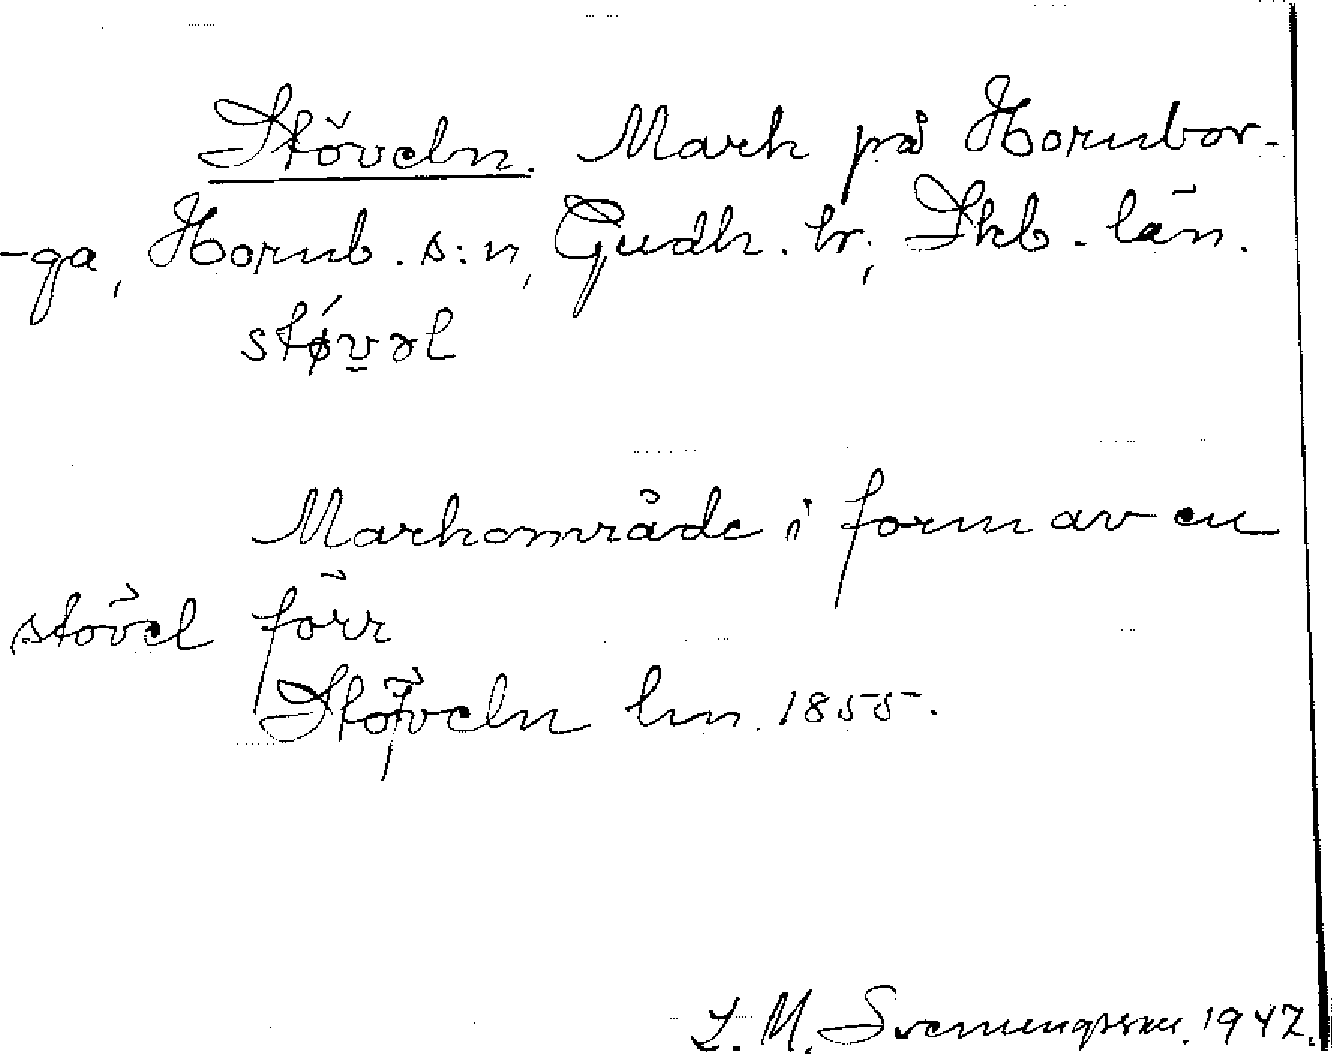 Stöveln. Mark på Hornbor-
-ga, Hornb. s:n, Gudh. hr, Skb. län.
støvəl
Markområde i form av en
stövel förr
Stöfveln hm. 1855.
L. M. Svenungsson. 1947.